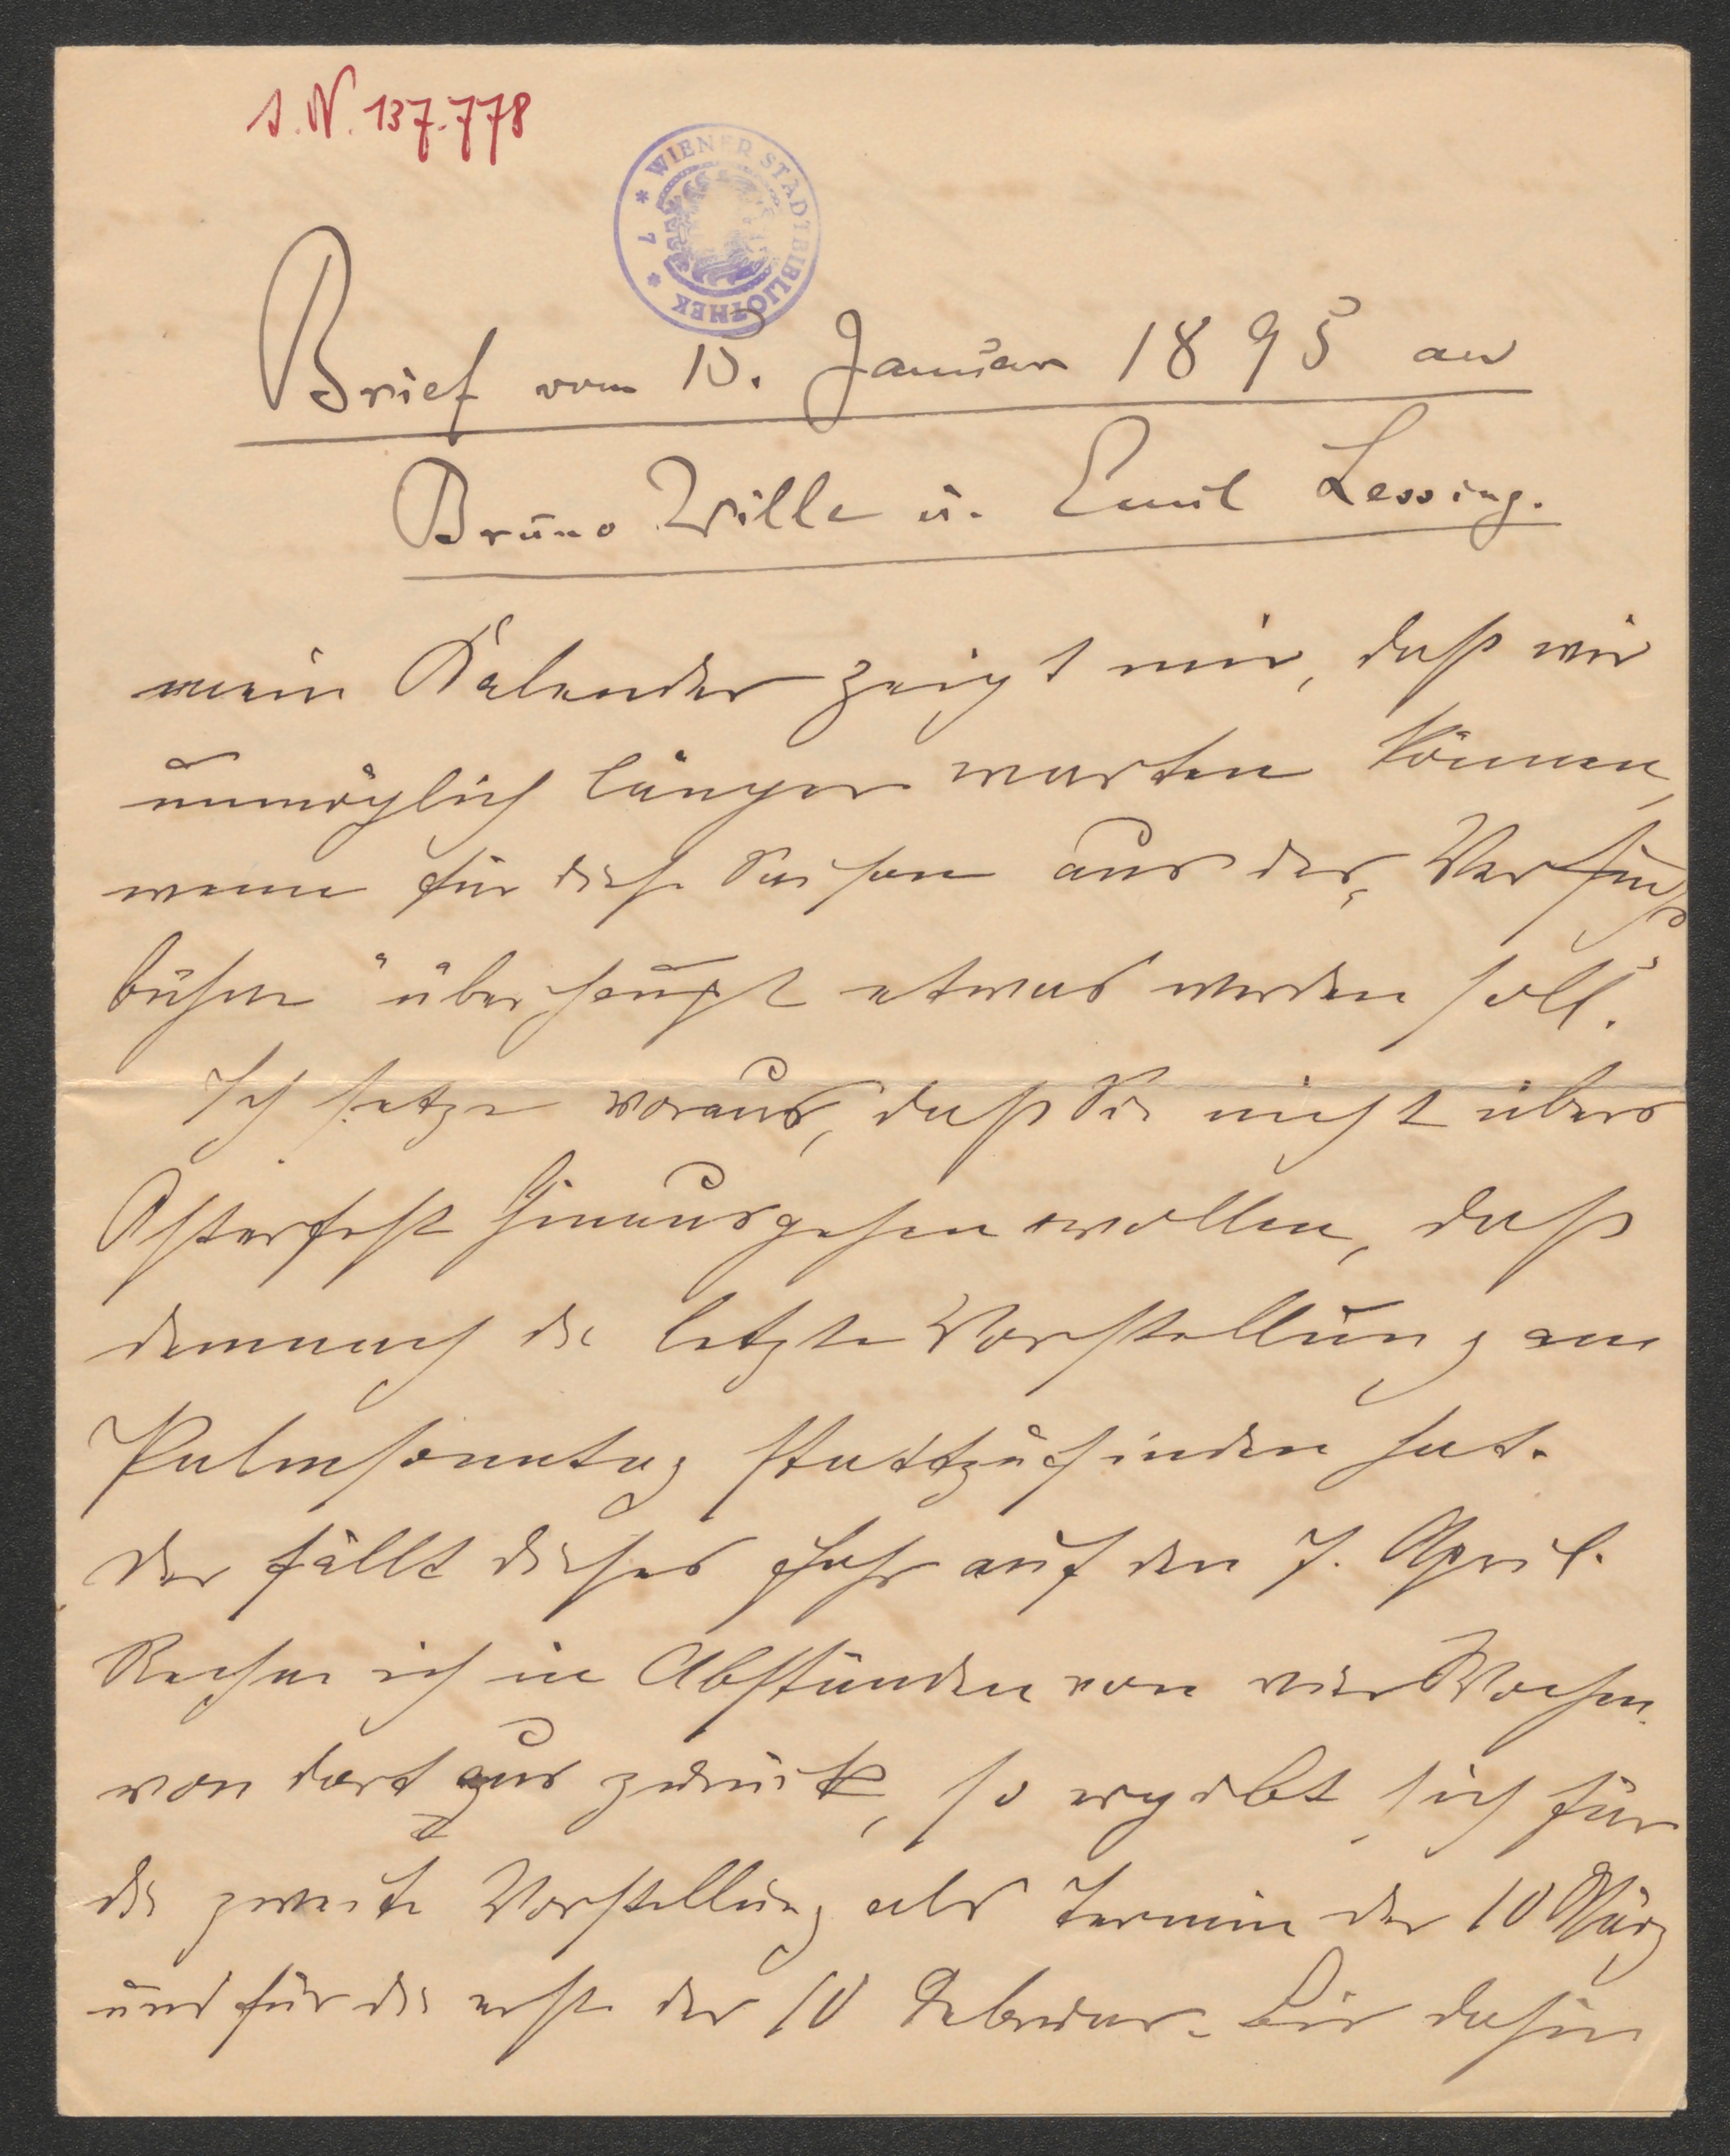 I. N. 137.778
* WIENER STADTBIBLIOTHEK * 7
Brief vom 15. Januar 1895 an
Bruno Wille u. Emil Lessing.
mein Kalender zeigt mir, daß wir
unmöglich länger warten können,
wenn für diese Saison aus der „Versuchs
bühne" überhaupt etwas werden soll.
Ich setze voraus, daß Sie nicht übers
Osterfest hinausgehen wollen, daß
demnach die letzte Vorstellung am
Palmsonntag stattzufinden hat.
Der fällt dieses Jahr auf den 7. April.
Rechne ich in Abständen von vier Wochen
von dort aus zurück, so ergibt sich für
die zweite Vorstellung als Termin der 10 März
und für die erste der 10 Februar. Bis dahin